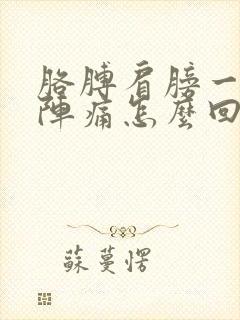 胳膊肩膀一
陣痛怎麼回
蘇蔓愣